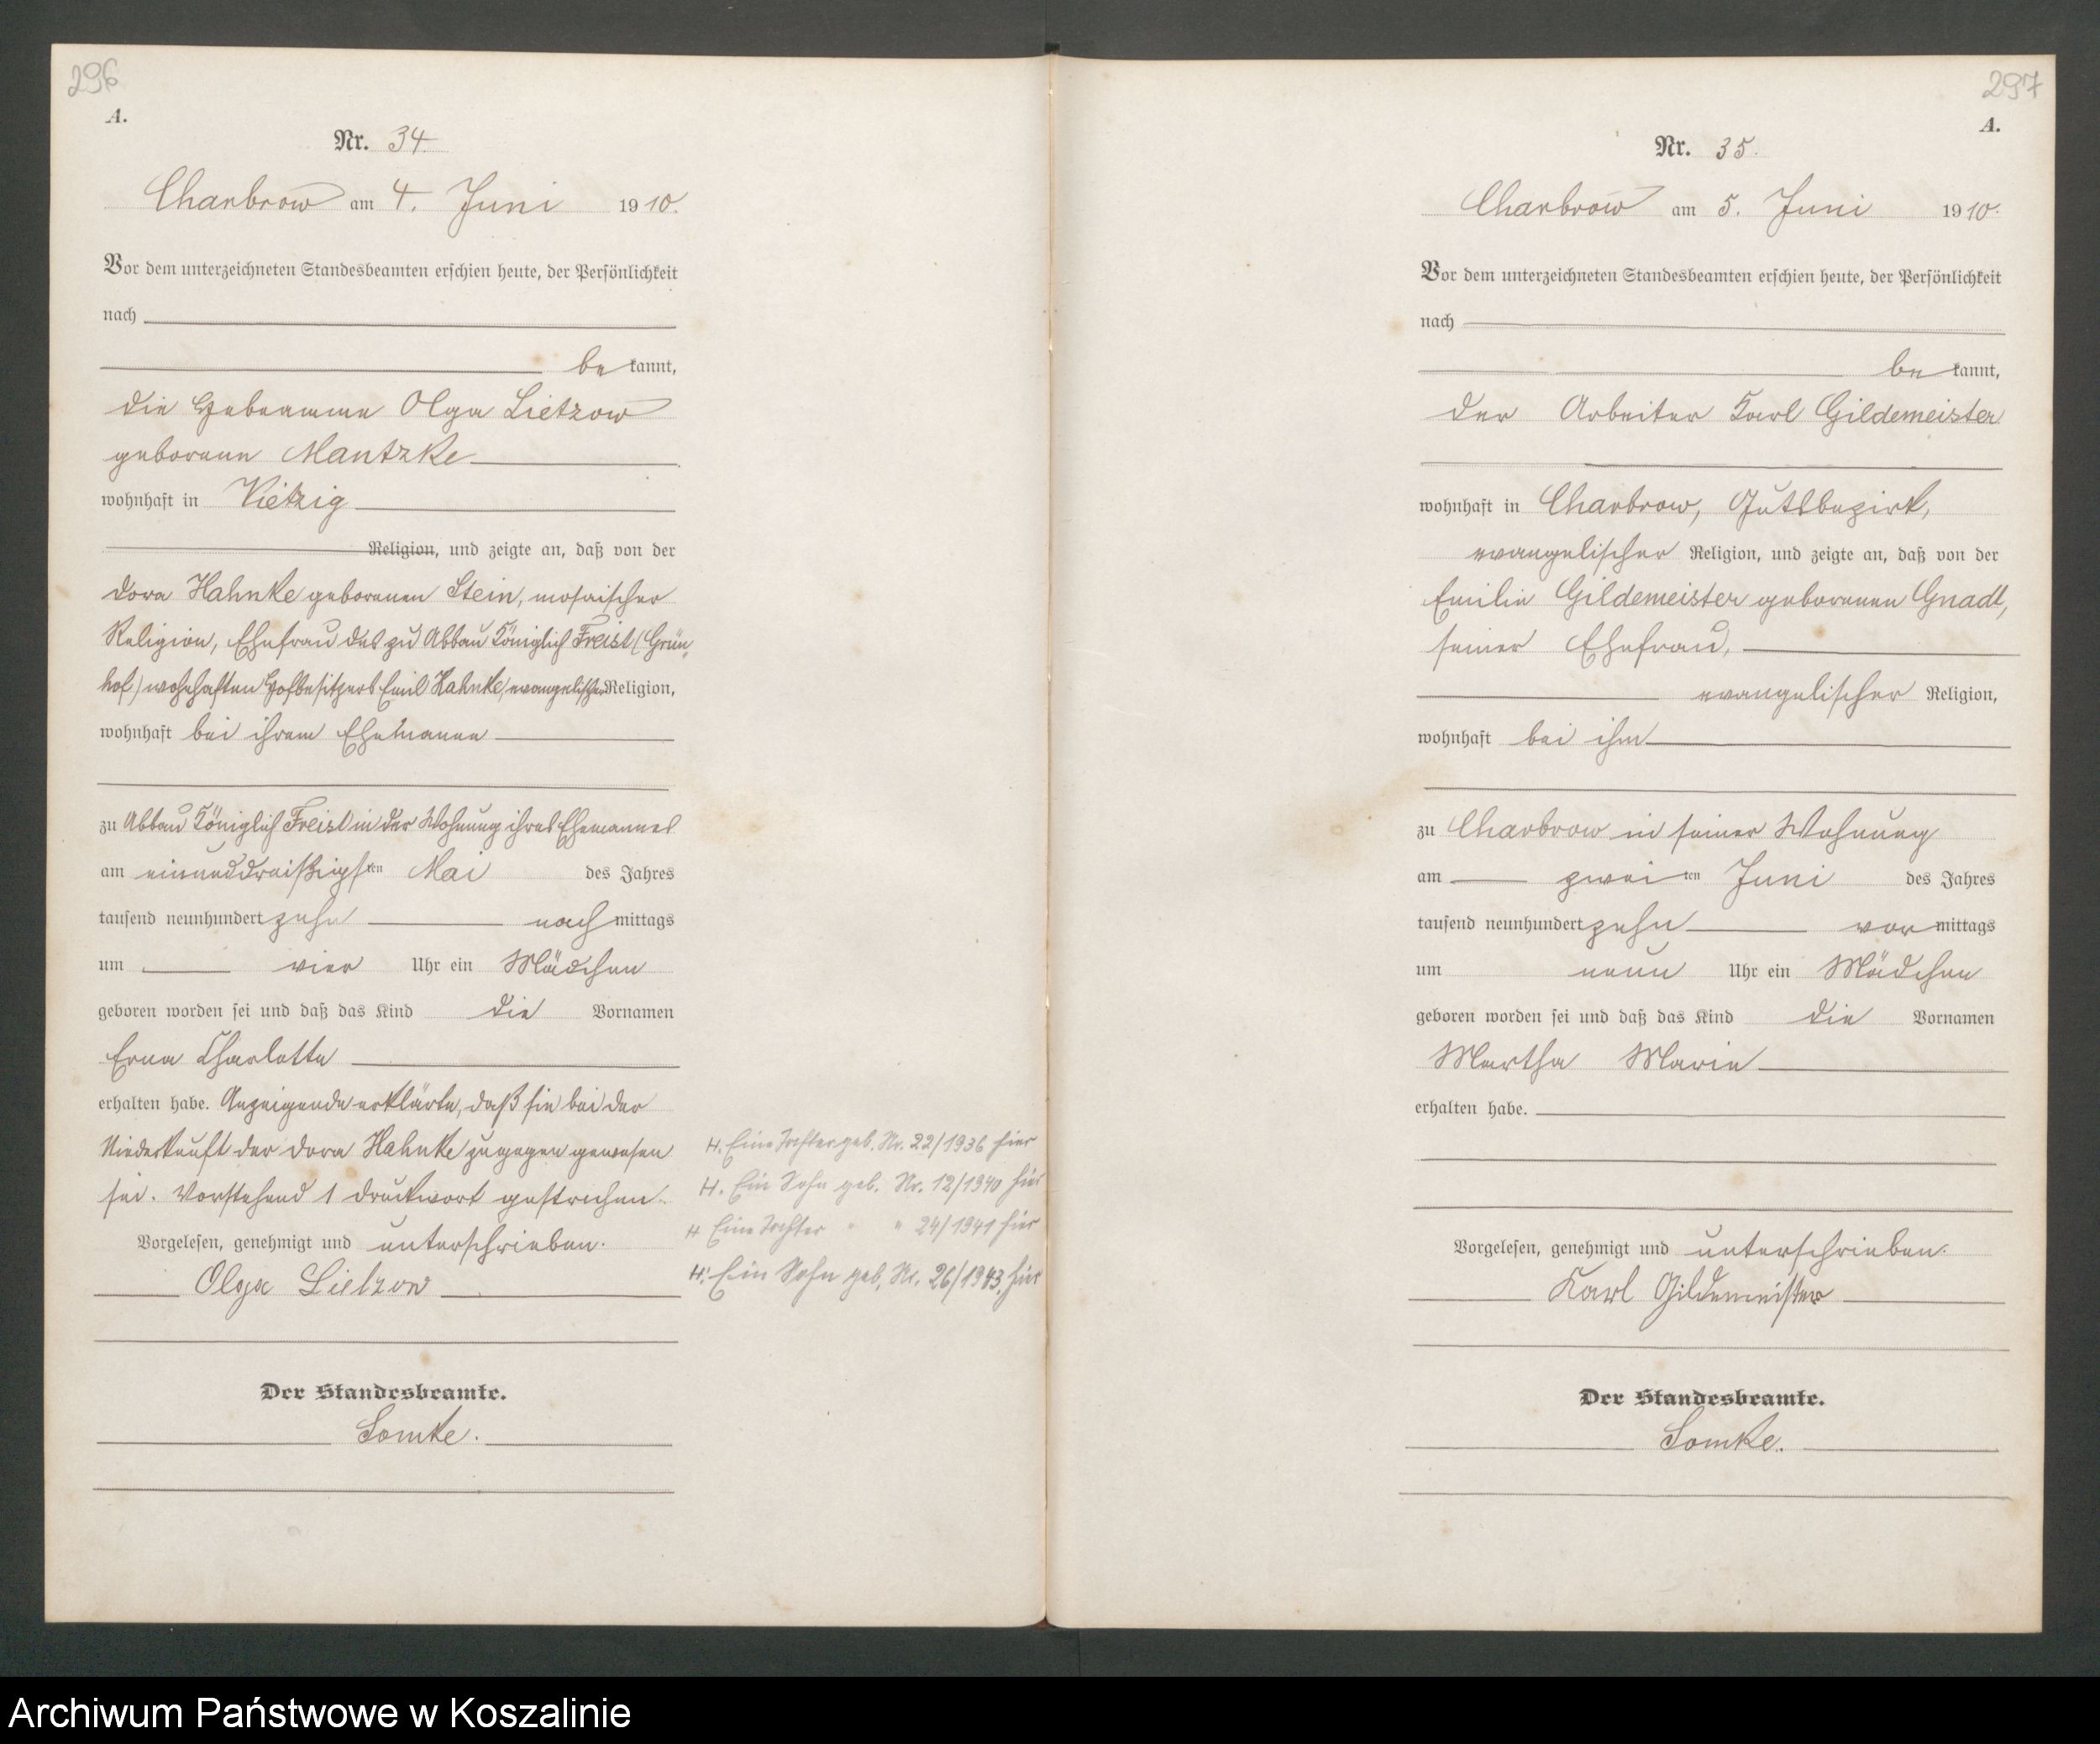 296
A.
Nr. 34.
Charbrow am 4. Juni 1910.
Vor dem unterzeichneten Standesbeamten erschien heute, der Persönlichkeit
nach
be kannt,
die Hebeamme Olga Lietzow
geborene Mantzke
wohnhaft in Vietzig
Religion, und zeigte an, daß von der
Dora Hahnke geborenen Stein, mosaischer
Religion, Ehefrau des zu Abbau Königlich Freist (Grün„
hof) wohnhaften Hofbesitzers Emil Hahnke, evangelischer Religion,
wohnhaft bei ihrem Ehemanne
zu Abbau Königlich Freist in der Wohnung ihres Ehemannes
am einunddreißigsten Mai des Jahres
tausend neunhundert zehn nach mittags
um vier Uhr ein Mädchen
geboren worden sei und daß das Kind die Vornamen
Erna Charlotte
erhalten habe. Anzeigende erklärte, daß sie bei der
Niederkunft der Dora Hahnke zugegen gewesen
sei. Vorstehend 1 Druckwort gestrichen.
Vorgelesen, genehmigt und unterschrieben.
Olga Lietzow
Der Standesbeamte.
Somke.
H. Eine Tochter geb. Nr. 22/1936 hier
H. Ein Sohn geb. Nr. 12/1940 hier
H Eine Tochter " " 24/1941 hier
H. Ein Sohn geb. Nr. 26/1943. hier
297
A.
Nr. 35.
Charbrow am 5. Juni 1910.
Vor dem unterzeichneten Standesbeamten erschien heute, der Persönlichkeit
nach
be kannt,
der Arbeiter Karl Gildemeister
wohnhaft in Charbrow, Gutsbezirk,
evangelischer Religion, und zeigte an, daß von der
Emilie Gildemeister geborenen Gnadt,
seiner Ehefrau,
evangelischer Religion,
wohnhaft bei ihm
zu Charbrow in seiner Wohnung
am zweiten Juni des Jahres
tausend neunhundert zehn vor mittags
um neun Uhr ein Mädchen
geboren worden sei und daß das Kind die Vornamen
Martha Marie
erhalten habe.
Vorgelesen, genehmigt und unterschrieben.
Karl Gildemeister
Der Standesbeamte.
Somke.
Archiwum Państwowe w Koszalinie